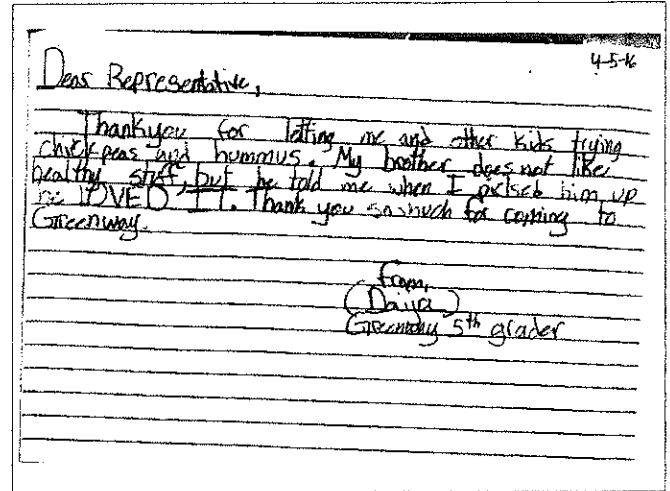 4-5-16
Dear Representative,
Thankyou for letting me and other kids trying
chickpeas and hummus. My brother does not like
healthy stuff, but he told me when I picked him up
he LOVED IT. Thank you so much for coming to
Greenway.
from,
(Daiya)
Greenway 5th grader